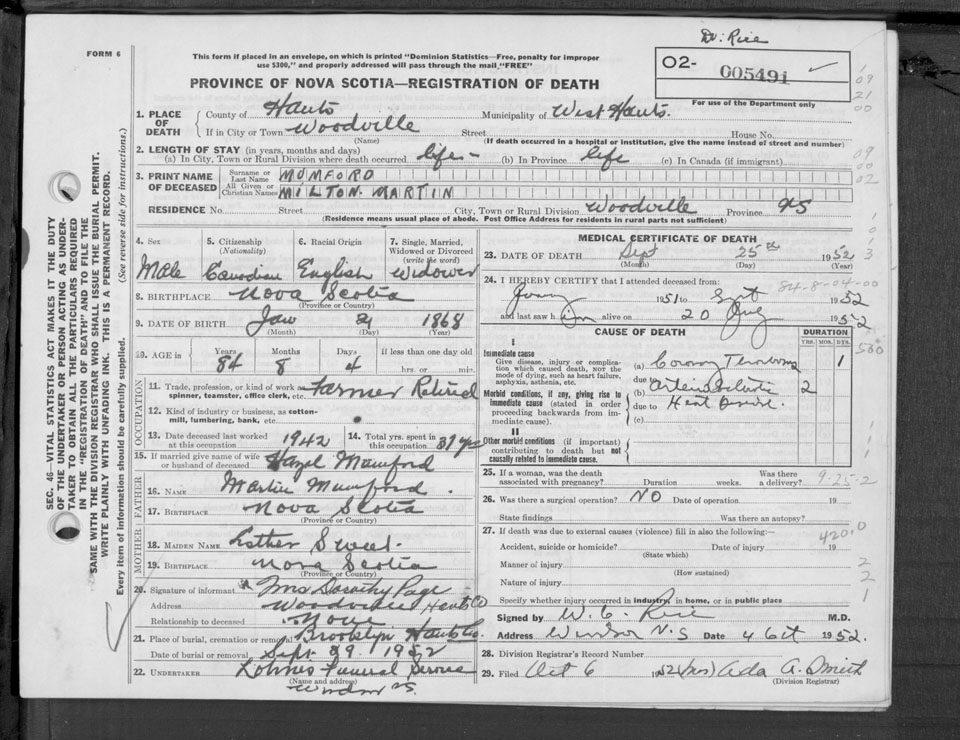 Dr. Rice
FORM 6
This form if placed in an envelope, on which is printed "Dominion Statistics—Free, penalty for improper
use $300," and properly addressed will pass through the mail "FREE"
O2- 005491
For use of the Department only
PROVINCE OF NOVA SCOTIA—REGISTRATION OF DEATH
1. PLACE OF DEATH County of Hants Municipality of West Hants.
If in City or Town Woodville Street House No.
(Name) (If death occurred in a hospital or institution, give the name instead of street and number)
2. LENGTH OF STAY (in years, months and days)
(a) In City, Town or Rural Division where death occurred life- (b) In Province life (c) In Canada (if immigrant)
3. PRINT NAME OF DECEASED Surname or Last Name MUMFORD
All Given or Christian Names MILTON MARTIN
RESIDENCE No. Street City, Town or Rural Division Woodville Province NS
(Residence means usual place of abode. Post Office Address for residents in rural parts not sufficient)
4. Sex Male
5. Citizenship (Nationality) Canadian
6. Racial Origin English
7. Single, Married, Widowed or Divorced (write the word) Widower
8. BIRTHPLACE Nova Scotia
(Province or Country)
9. DATE OF BIRTH Jan 21 1868
(Month) (Day) (Year)
10. AGE in Years 84 Months 8 Days 4 If less than one day old hrs. or min.
OCCUPATION
11. Trade, profession, or kind of work as spinner, teamster, office clerk, etc. Farmer Retired
12. Kind of industry or business, as cotton-mill, lumbering, bank, etc.
13. Date deceased last worked at this occupation 1942
14. Total yrs. spent in this occupation
15. If married give name of wife or husband of deceased Hazel Mumford
FATHER
16. NAME Martin Mumford.
17. BIRTHPLACE Nova Scotia
(Province or Country)
MOTHER
18. MAIDEN NAME Esther Sweet.
19. BIRTHPLACE Nova Scotia
(Province or Country)
20. Signature of informant Mrs Dorothy Page
Address Woodville Hants Co
Relationship to deceased None
21. Place of burial, cremation or removal Brooklyn Hants Co.
Date of burial or removal Sept. 29. 1952
22. UNDERTAKER Lohnes Funeral Service
(Name and address)
Windsor NS.
MEDICAL CERTIFICATE OF DEATH
23. DATE OF DEATH Sept 25th 1952
(Month) (Day) (Year)
24. I HEREBY CERTIFY that I attended deceased from:
84-8-04-00
1951 to Sept 1952
and last saw him alive on 20 Aug 1952
CAUSE OF DEATH DURATION
YRS. MOS. DYS.
I
Immediate cause
Give disease, injury or complication which caused death, NOT the mode of dying, such as heart failure, asphyxia, asthenia, etc.
(a) Coronary Thrombosis 1
due to
Morbid conditions, if any, giving rise to immediate cause (stated in order proceeding backwards from immediate cause).
(b) 2
due to Heart Disease.
(c)
II
Other morbid conditions (if important) contributing to death but not causally related to immediate cause.
25. If a woman, was the death associated with pregnancy? Duration weeks. Was there a delivery?
9-25-2
26. Was there a surgical operation? NO Date of operation 19
State findings Was there an autopsy?
27. If death was due to external causes (violence) fill in also the following:—
420.
Accident, suicide or homicide? Date of injury 19
(State which)
Manner of injury
(How sustained)
Nature of injury
Specify whether injury occurred in industry, in home, or in public place
Signed by W. C. Rice M.D.
Address Windsor N.S Date 4 Oct 1952.
28. Division Registrar's Record Number
29. Filed Oct 6 1952 (Mrs) Ada A. Smith
(Division Registrar)
SEC. 46—VITAL STATISTICS ACT MAKES IT THE DUTY
OF THE UNDERTAKER OR PERSON ACTING AS UNDER-
TAKER TO OBTAIN ALL THE PARTICULARS REQUIRED
IN THE "REGISTRATION OF DEATH" AND TO FILE THE
SAME WITH THE DIVISION REGISTRAR WHO SHALL ISSUE THE BURIAL PERMIT.
WRITE PLAINLY WITH UNFADING INK. THIS IS A PERMANENT RECORD.
Every item of information should be carefully supplied. (See reverse side for instructions.)